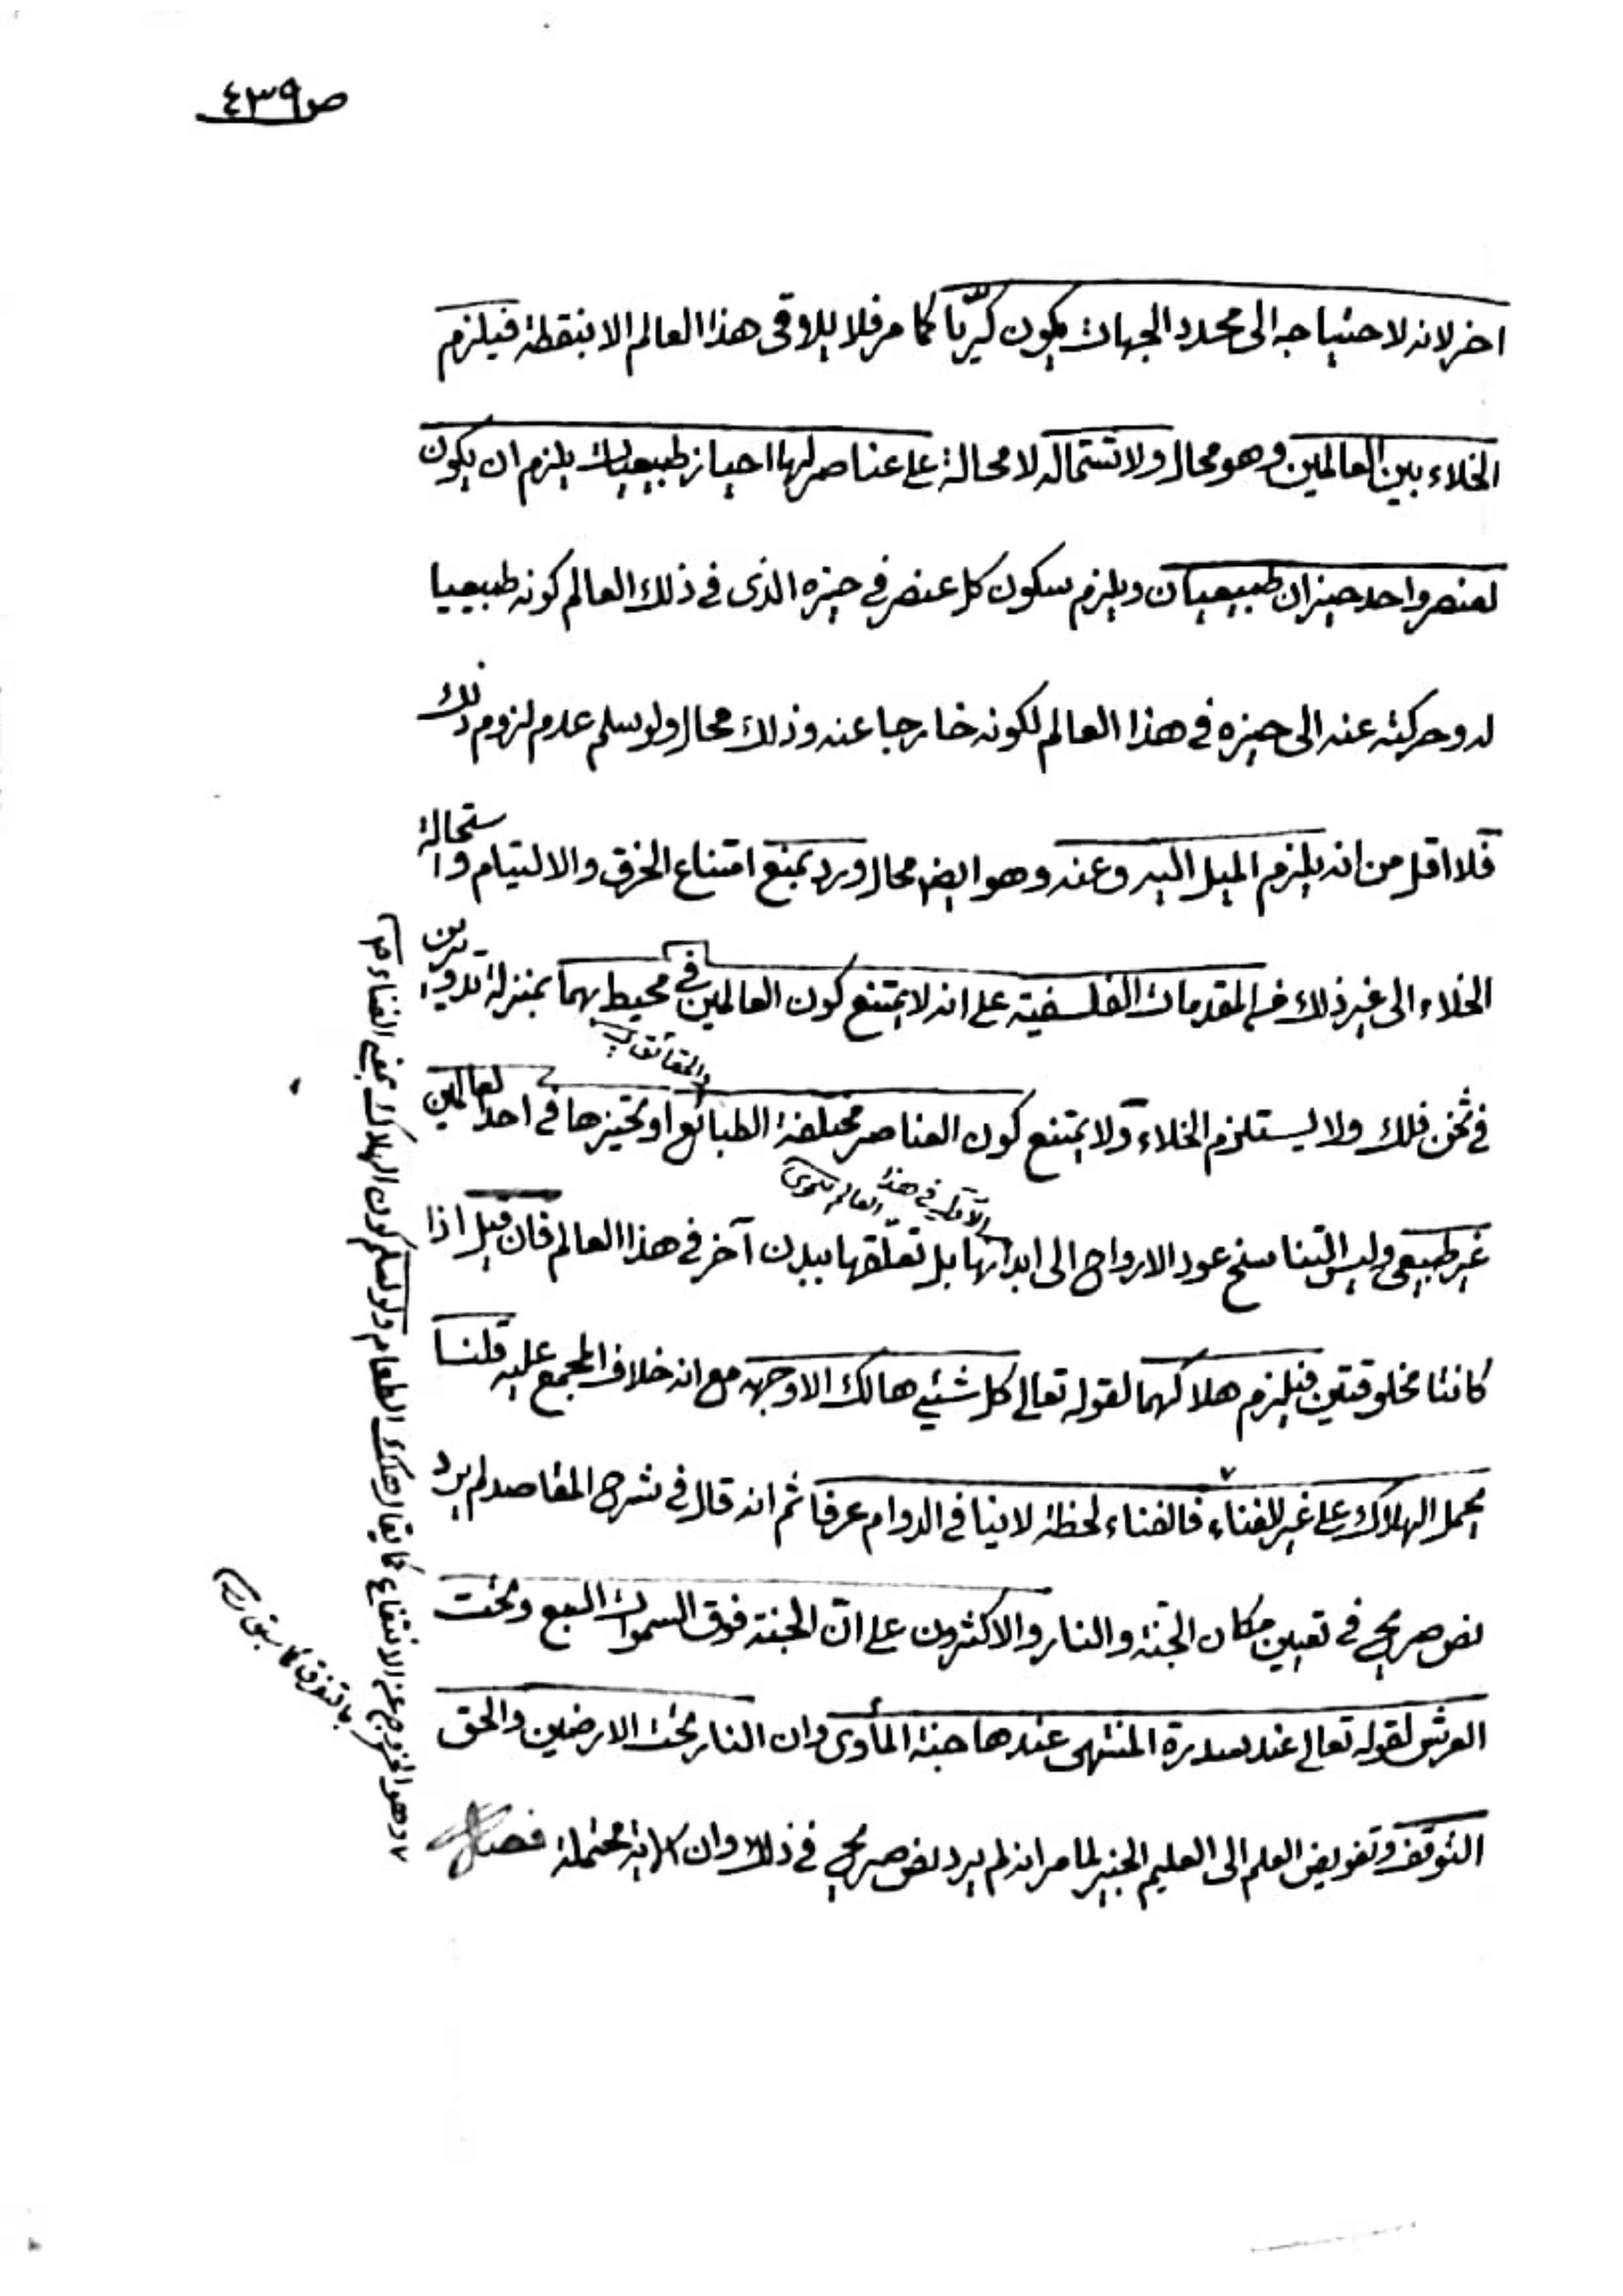 ص٤٣٩
اخر لانه لاحتياجه الى محدد الجهات يكون كريّا كما مر فلا يلاوقى هذا العالم الا بنقطة فيلزم
الخلاء بين العالمين وهو محال ولاشتماله لا محالة على عناصر لها احياز طبيعيات يلزم ان يكون
لعنصر واحد حيزان طبيعيان ويلزم سكون كل عنصر فى حيزه الذى فى ذلك العالم كونه طبيعيا
له وحركته عنه الى حيزه فى هذا العالم لكونه خارجا عنه وذلك محال ولو سلم عدم لزوم ذلك
فلا اقل من انه يلزم الميل اليه وعنه وهو ايض محال ورد بمنع امتناع الخرق والالتيام واستحالة
الخلاء الى غير ذلك من المقدمات الفلسفية على انه لا يمتنع كون العالمين فى محيط بهما بمنزلة تدويرين
والحقائق
فى ثخن فلك ولا يستلزم الخلاء ولا يمتنع كون العناصر مختلفة الطبائع او تحيزها فى احد العالمين
الأول فى هذا العالم
غير طبيعى وليس التناسخ عود الارواح الى ابدانها بل تعلّقها ببدن آخر فى هذا العالم فان قيل اذا
كانتا مخلوقتين فيلزم هلاكهما لقوله تعالى كل شئي هالك الا وجهه مع انه خلاف المجمع عليه قلنا
يحمل الهلاك على غير الفناء فالفناء لحظة لا ينافى الدوام عرفا ثم انه قال فى شرح المقاصد لم يرد
نص صريح فى تعيين مكان الجنة والنار والاكثرون على انّ الجنة فوق السموات السبع وتحت
العرش لقوله تعالى عند سدرة المنتهى عندها جنة المأوى وان النار تحت الارضين والحق
التوقف وتفويض العلم الى العليم الخبير لما مر انه لم يرد نص صريح فى ذلك وان الاية محتملة فصل
٧ وهو الخروج عن الانتفاع كما يقال هلك الطعام ولو سلم كون الهلاك بمعنى الفناء
بالتفرق كما سبق